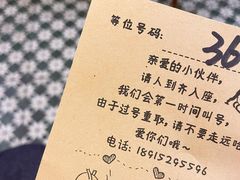 等位号码: 36
亲爱的小伙伴,
请人到齐入座,
我们会第一时间叫号,
由于过号重取,请不要走远哈
爱你们哦~
电话:18915295596